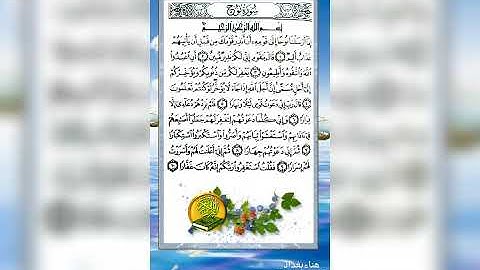 سُورَةُ نُوحٍ
بِسْمِ اللَّهِ الرَّحْمَٰنِ الرَّحِيمِ
إِنَّا أَرْسَلْنَا نُوحًا إِلَىٰ قَوْمِهِ أَنْ أَنذِرْ قَوْمَكَ مِن قَبْلِ أَن يَأْتِيَهُمْ
عَذَابٌ أَلِيمٌ ۝١ قَالَ يَا قَوْمِ إِنِّي لَكُمْ نَذِيرٌ مُّبِينٌ ۝٢ أَنِ اعْبُدُوا
اللَّهَ وَاتَّقُوهُ وَأَطِيعُونِ ۝٣ يَغْفِرْ لَكُم مِّن ذُنُوبِكُمْ وَيُؤَخِّرْكُمْ
إِلَىٰ أَجَلٍ مُّسَمًّى إِنَّ أَجَلَ اللَّهِ إِذَا جَاءَ لَا يُؤَخَّرُ لَوْ كُنتُمْ تَعْلَمُونَ
۝٤ قَالَ رَبِّ إِنِّي دَعَوْتُ قَوْمِي لَيْلًا وَنَهَارًا ۝٥ فَلَمْ يَزِدْهُمْ دُعَائِي إِلَّا
فِرَارًا ۝٦ وَإِنِّي كُلَّمَا دَعَوْتُهُمْ لِتَغْفِرَ لَهُمْ جَعَلُوا أَصَابِعَهُمْ
فِي آذَانِهِمْ وَاسْتَغْشَوْا ثِيَابَهُمْ وَأَصَرُّوا وَاسْتَكْبَرُوا اسْتِكْبَارًا
۝٧ ثُمَّ إِنِّي دَعَوْتُهُمْ جِهَارًا ۝٨ ثُمَّ إِنِّي أَعْلَنتُ لَهُمْ وَأَسْرَرْتُ
لَهُمْ إِسْرَارًا ۝٩ فَقُلْتُ اسْتَغْفِرُوا رَبَّكُمْ إِنَّهُ كَانَ غَفَّارًا ۝١٠
هناء بغداد